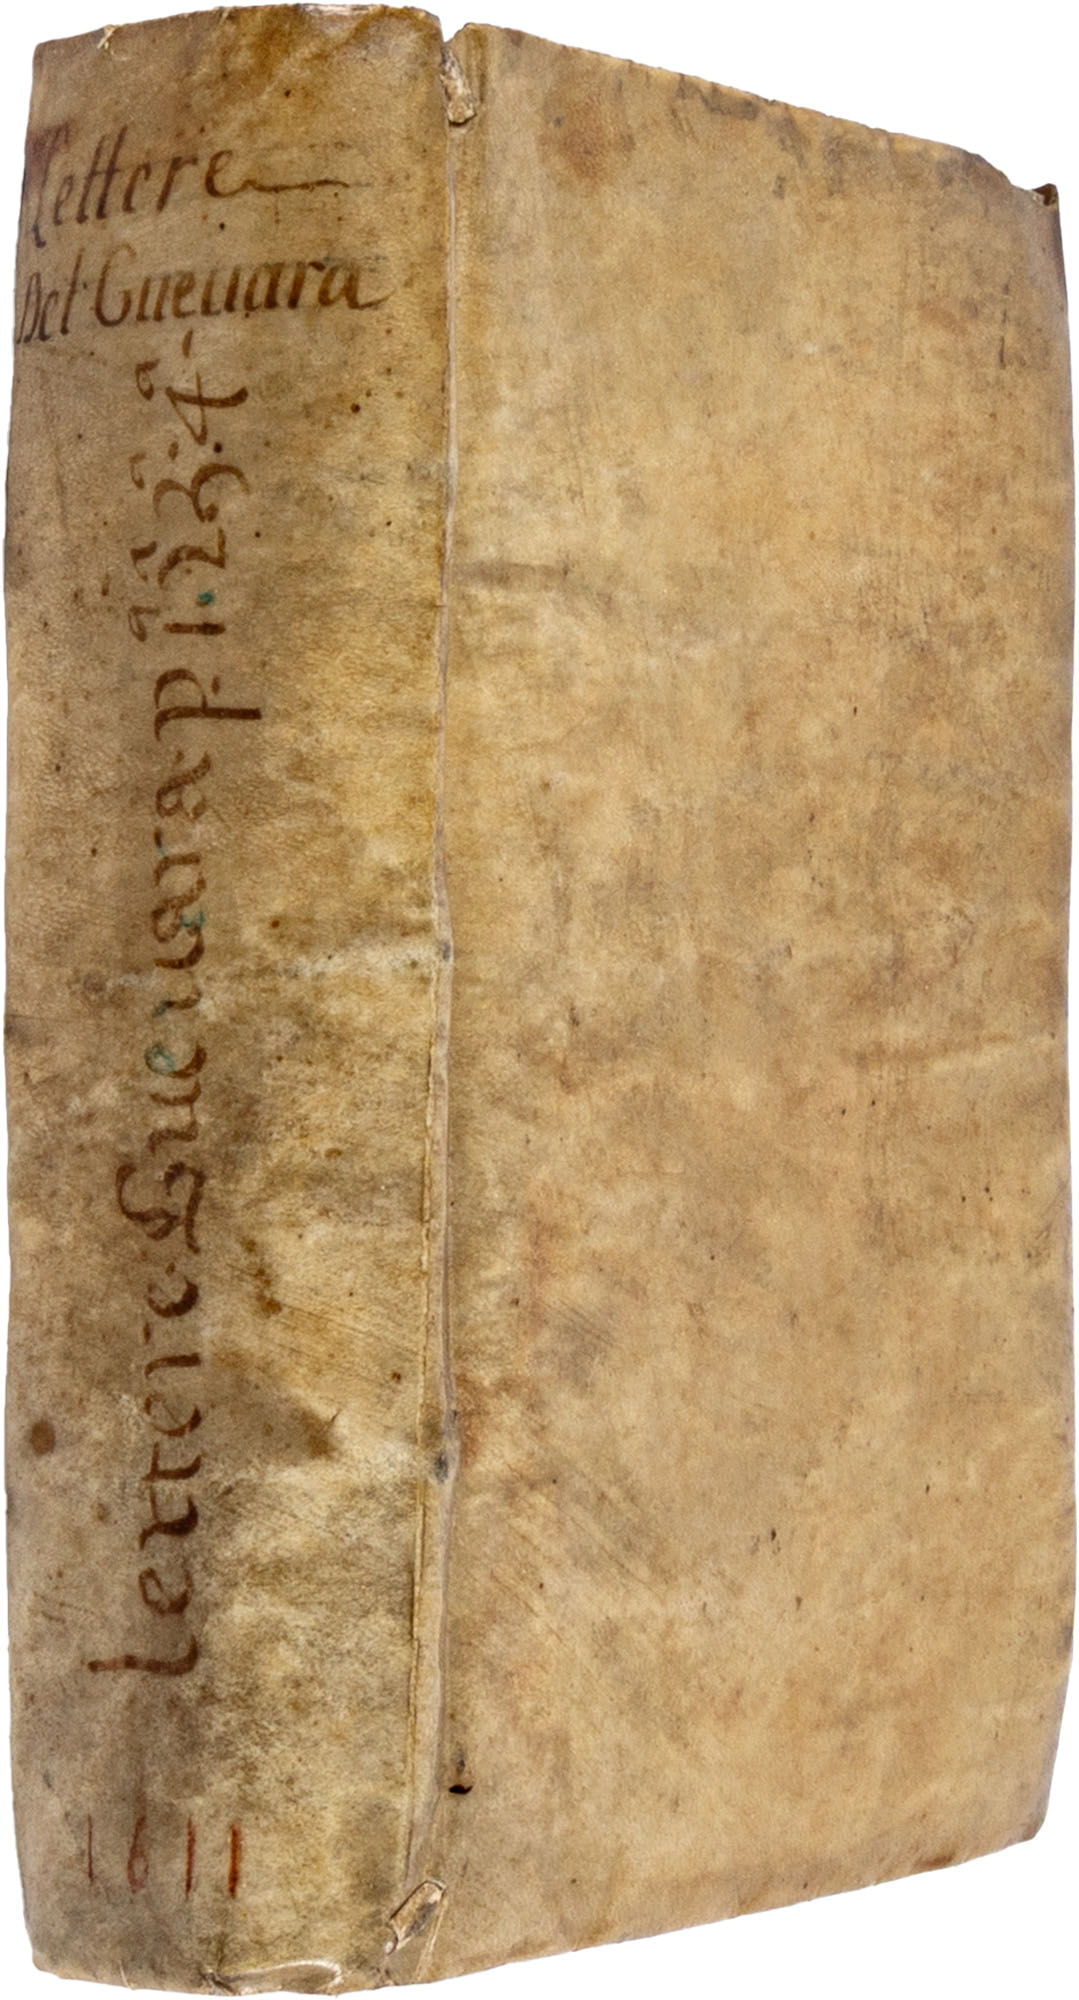 Lettere
Del Gueuara
Lettere Gueuara p 1ª 2ª 3ª 4ª
1611